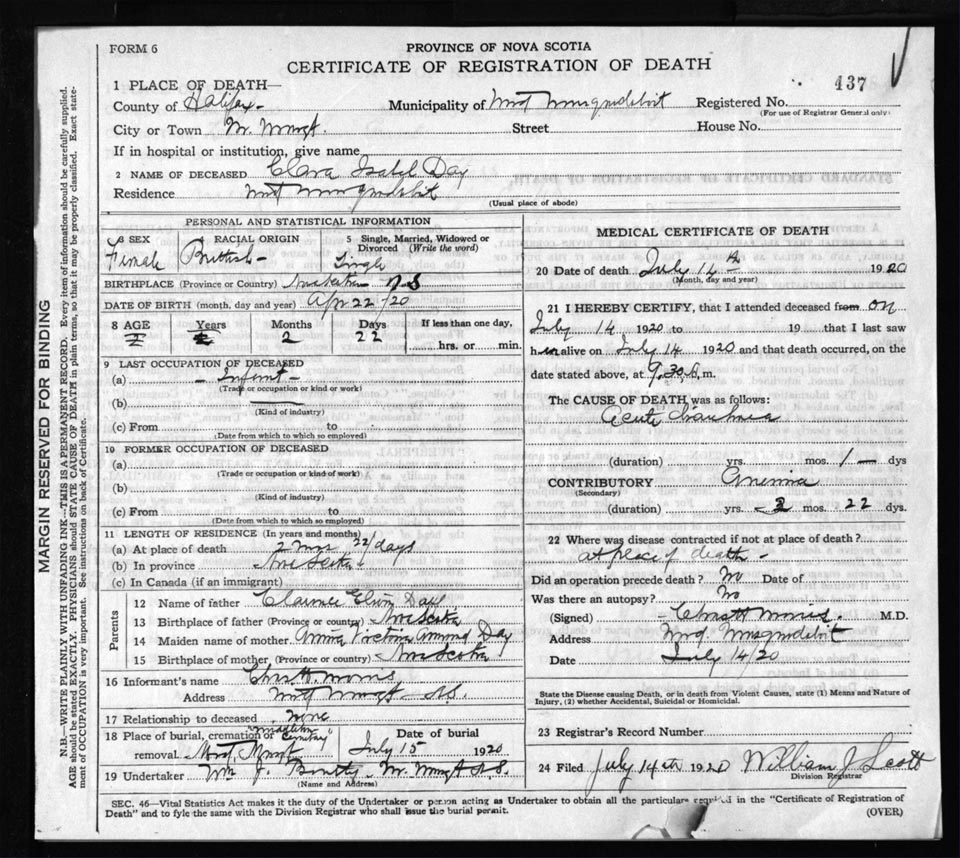 FORM 6
PROVINCE OF NOVA SCOTIA
CERTIFICATE OF REGISTRATION OF DEATH
437
1 PLACE OF DEATH—
County of Halifax - Municipality of Musquodoboit Registered No.
(For use of Registrar General only)
City or Town M. Musqt. Street House No.
If in hospital or institution, give name
2 NAME OF DECEASED Clara Isabel Day
Residence Musquodoboit
(Usual place of abode)
PERSONAL AND STATISTICAL INFORMATION
3 SEX Female
RACIAL ORIGIN British -
5 Single, Married, Widowed or Divorced (Write the word) Single
BIRTHPLACE (Province or Country) N S
DATE OF BIRTH (month, day and year) Apr 22/20
8 AGE Years Months 2 Days 22 If less than one day, hrs. or min.
9 LAST OCCUPATION OF DECEASED
(a) - Infant -
(Trade or occupation or kind or work)
(b)
(Kind of industry)
(c) From to
(Date from which to which so employed)
10 FORMER OCCUPATION OF DECEASED
(a)
(Trade or occupation or kind of work)
(b)
(Kind of industry)
(c) From to
(Date from which to which so employed)
11 LENGTH OF RESIDENCE (In years and months)
(a) At place of death 2 mos 22/days
(b) In province
(c) In Canada (if an immigrant)
Parents
12 Name of father Clarence Day
13 Birthplace of father (Province or country) Nova Scotia
14 Maiden name of mother Day
15 Birthplace of mother (Province or country) Nova Scotia
16 Informant's name Morris
Address Musqt N.S.
17 Relationship to deceased none
18 Place of burial, cremation or removal. cemetery Musqt
Date of burial July 15 1920
19 Undertaker Wm J. M. Musqt N.S.
(Name and Address)
MEDICAL CERTIFICATE OF DEATH
20 Date of death July 14th 1920
(Month, day and year)
21 I HEREBY CERTIFY, that I attended deceased from on
July 14 1920 to 19 that I last saw
her alive on July 14 1920 and that death occurred, on the
date stated above, at 9.30 A.m.
The CAUSE OF DEATH was as follows:
Acute
(duration) yrs. mos. 1 — dys
CONTRIBUTORY Anemia
(Secondary)
(duration) yrs. 2 mos. 22 dys.
22 Where was disease contracted if not at place of death?
at place of death -
Did an operation precede death? No Date of
Was there an autopsy? No
(Signed) Morris M.D.
Address Musquodoboit
Date July 14/20
State the Disease causing Death, or in death from Violent Causes, state (1) Means and Nature of
Injury, (2) whether Accidental, Suicidal or Homicidal.
23 Registrar's Record Number
24 Filed July 14th 1920 William J Scott
Division Registrar
SEC. 46—Vital Statistics Act makes it the duty of the Undertaker or person acting as Undertaker to obtain all the particulars required in the "Certificate of Registration of
Death" and to fyle the same with the Division Registrar who shall issue the burial permit. (OVER)
MARGIN RESERVED FOR BINDING
N.B.—WRITE PLAINLY WITH UNFADING INK—THIS IS A PERMANENT RECORD. Every item of information should be carefully supplied.
AGE should be stated EXACTLY. PHYSICIANS should STATE CAUSE OF DEATH in plain terms, so that it may be properly classified. Exact statement of OCCUPATION is very important. See instructions on back of Certificate.